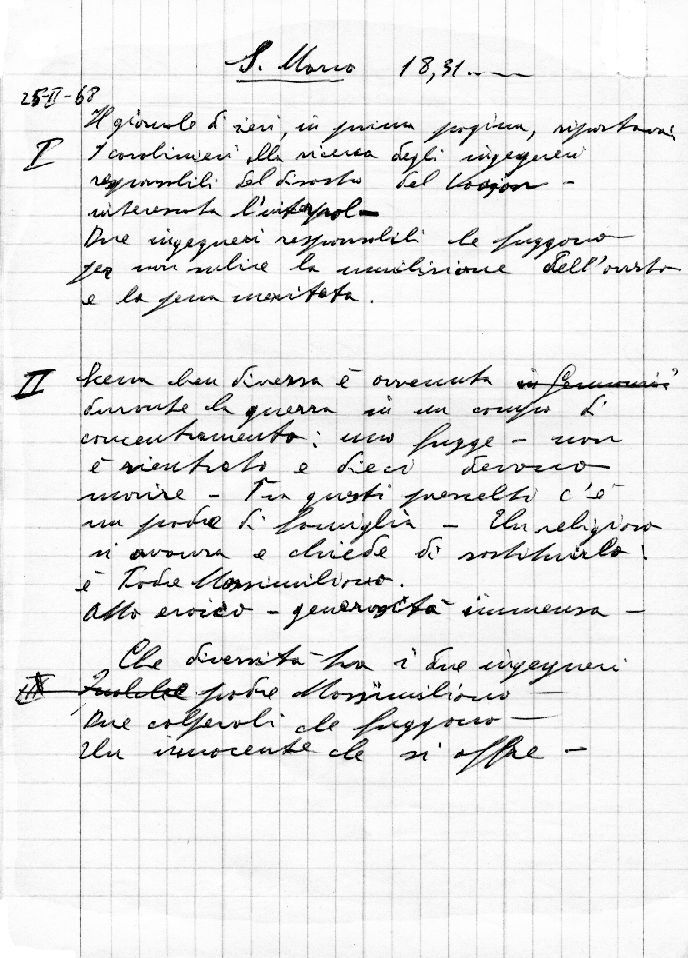 S. Marco 18,31.
25-II-68
Il giornale di ieri, in prima pagina, riportava:
I I carabinieri alla ricerca degli ingegneri
responsabili del disastro del Vajont -
interessata l'interpol -
Due ingegneri responsabili che fuggono
per non subire la umiliazione dell'arresto
e la pena meritata.
II Scena ben diversa è avvenuta in Germania
durante la guerra in un campo di
concentramento: uno fugge - non
è rientrato e dieci devono
morire - Tra questi prescelti c'è
un padre di famiglia - Un religioso
si avanza e chiede di sostituirlo:
è Padre Massimiliano.
Atto eroico - generosità immensa -
Che diversità tra i due ingegneri
III padre Massimiliano -
Due colpevoli che fuggono -
Un innocente che si offre -